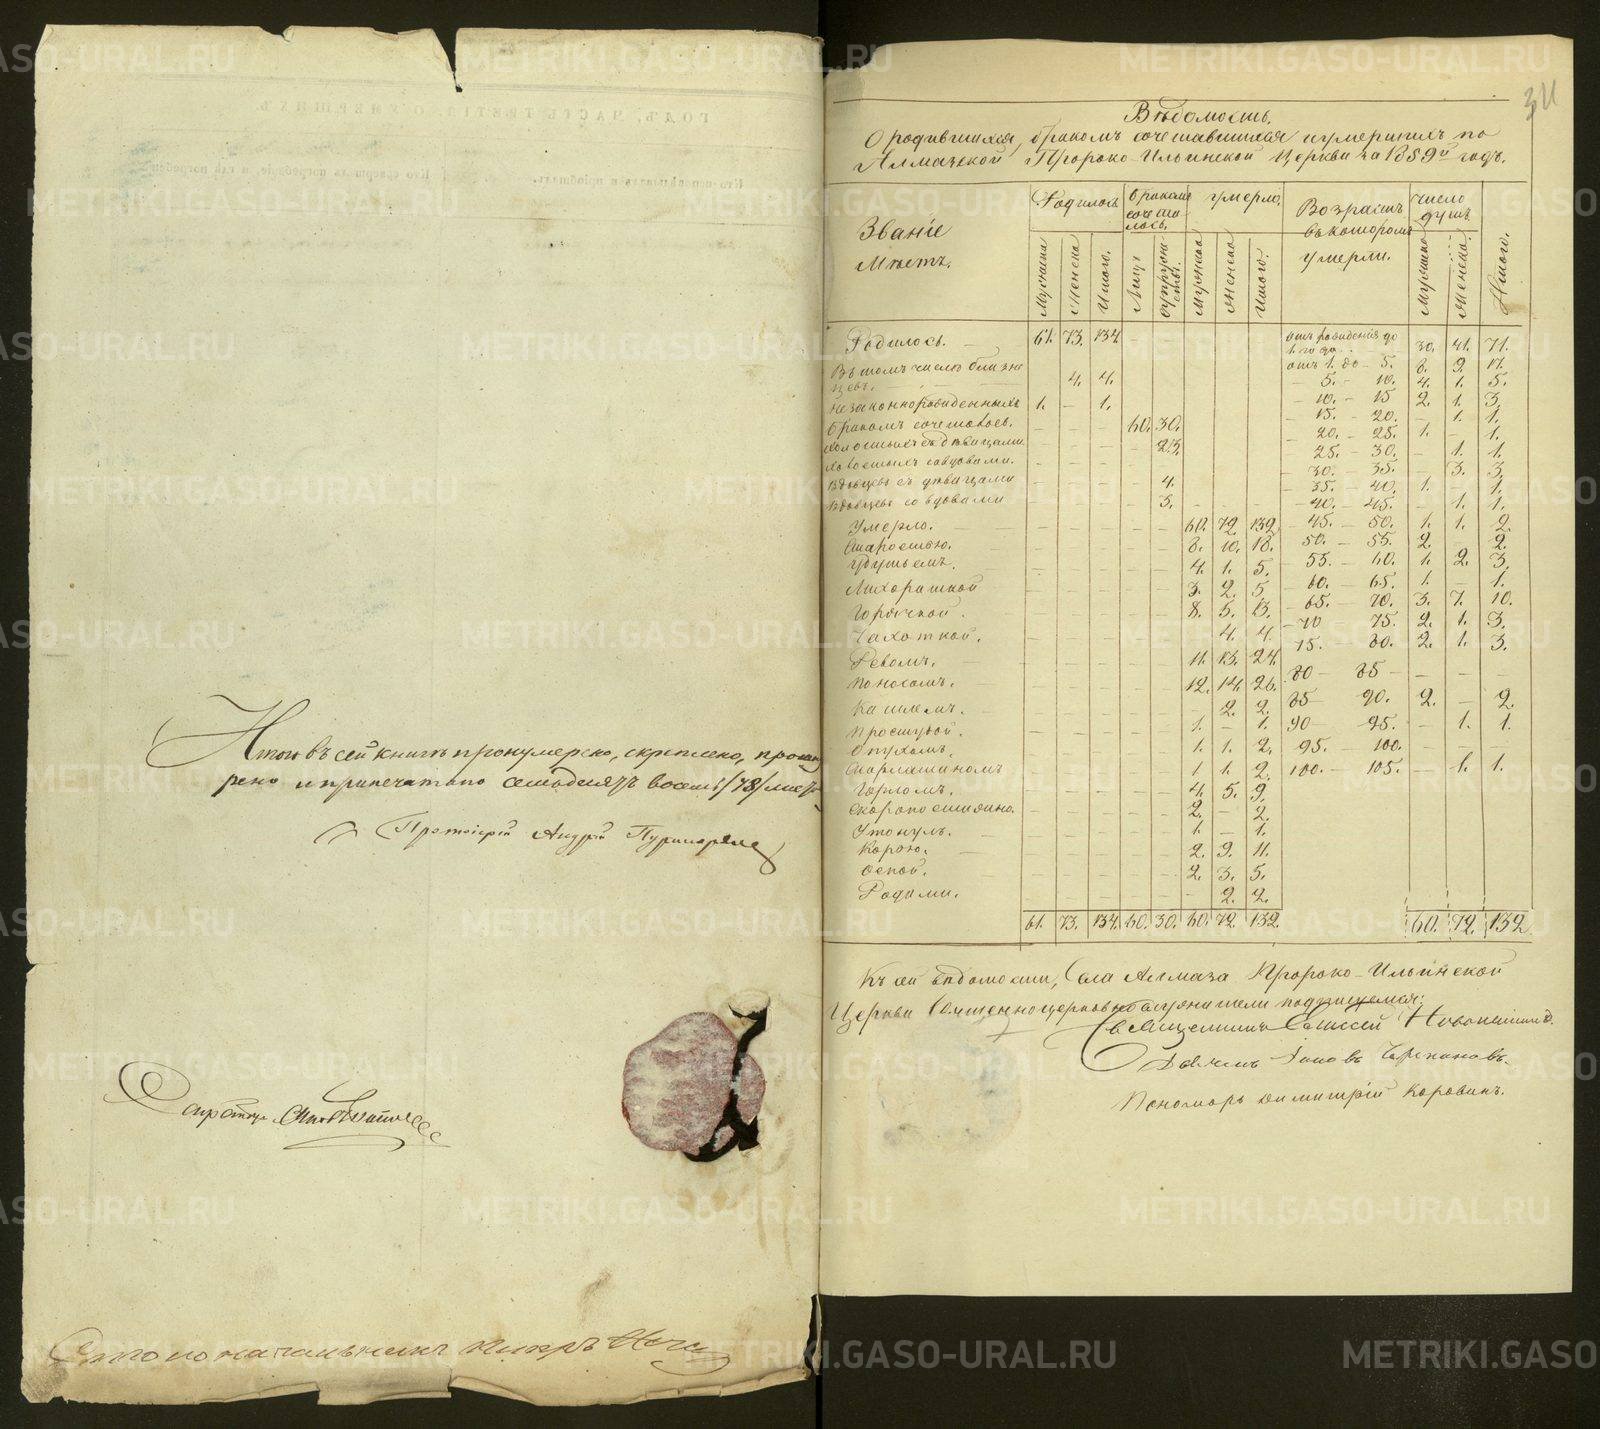 Итого въ сей книгѣ пронумерено, скреплено, прошну
рено и припечатано семьдесятъ восемь /78/ листо
Протоіерей Андрей
Секретарь
Столоначальникъ
Вѣдомость
О родившихся, бракомъ сочетавшихся и умершихъ по
Алмазской Пророко-Ильинской Церкви за 1859й годъ.
Званіе Мѣстъ. Родилось Бракомъ сочеталось. Умерло. Возрастъ въ которомъ умерли. Число душъ Итого.
Мужска Женска Итого. Лицъ Супружествъ. Мужска Женска Итого. Мужска Женска.
Родилось. 61. 73. 134 отъ рожденія до 1го года 30. 41. 71.
Въ томъ числѣ близнецовъ. 4. 4. отъ 1. до 5. 8. 9. 17.
5. - 10. 4. 1. 5.
Незаконнорожденныхъ 1. - 1. 10. - 15 2. 1. 3.
Бракомъ сочеталось. 60. 30. 15. - 20. - 1. 1.
Холостыхъ съ дѣвицами 23. 20. - 25. 1. - 1.
Холостыхъ съ вдовами. 25. - 30. - 1. 1.
30. - 35. - 3. 3.
Вдовцевъ съ дѣвицами 4. 35. - 40. 1. 1.
Вдовцевъ со вдовами 3. 40. - 45. - 1. 1.
Умерло. 60. 72 132 45. - 50. 1. 1. 2.
Старостью. 8. 10. 18. 50. - 55. 2. 2.
Удушьемъ. 4. 1. 5. 55. - 60. 1. 2. 3.
Лихорадкой 3. 2. 5 60. - 65. 1. - 1.
Горячкой. 8. 5. 13. 65. - 70. 3. 7. 10.
Чахоткой. 4. 4. 70 - 75. 2. 1. 3.
Ревомъ. 11. 13. 24. 75. - 80. 2. 1. 3.
Поносомъ. 12. 14. 26. 80 - 85 - - -
Кашлемъ. 2. 2. 85 - 90. 2. - 2.
Простудой. 1. - 1. 90 - 95. - 1. 1.
Опухолью. 1. 1. 2. 95. 100. - - -
Скарлатиномъ 1 1. 2. 100. - 105. - 1. 1.
Горломъ. 4. 5. 9.
Скоропостижно. 2. - 2.
Утонулъ. 1. - 1.
Корью. 2. 9. 11.
Оспой. 2. 3. 5.
Родами. - 2. 2.
61. 73. 134. 60. 30. 60. 72. 132. 60. 72. 132
Къ сей вѣдомости, Села Алмаза Пророко-Ильинской
Церкви Священноцерковнослужители подписуемся:
Священникъ Елисей
Дьячекъ Іаковъ Черепановъ.
Пономарь Димитрій Коровинъ.
METRIKI.GASO-URAL.RU